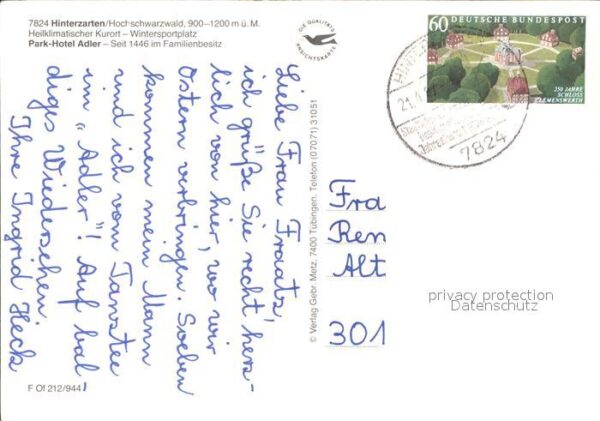 7824 Hinterzarten/Hochschwarzwald, 900–1200 m ü. M.
Heilklimatischer Kurort – Wintersportplatz
Park-Hotel Adler – Seit 1446 im Familienbesitz
DIE QUALITÄTS
ANSICHTSKARTE
60 DEUTSCHE BUNDESPOST
250 JAHRE
SCHLOSS
CLEMENSWERTH
7824
Liebe Frau Fraatz,
ich grüße Sie recht herz-
lich von hier, wo wir
Ostern verbringen. Soeben
kommen mein Mann
und ich vom Tanztee
im „Adler“! Auf bal-
diges Wiedersehen.
Ihre Ingrid Heck
© Verlag Gebr. Metz, 7400 Tübingen, Telefon (07071) 31051
Fra
Ren
Alt
301
privacy protection
Datenschutz
F Of 212/944